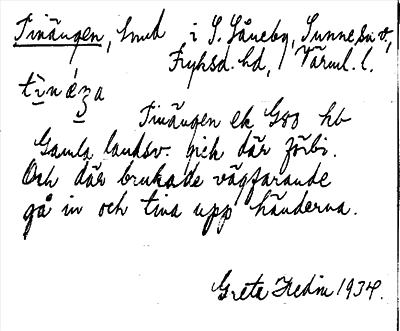 Tinängen, hmd i S. Låneby, Sunne sn,
Fryksd. hd, Värml. l.
tìnǽŋa
Tinängen ek G80 hb
Gamla landsv. gick där förbi.
Och där brukade vägfarande
gå in och tina upp händerna.
Greta Hedin 1934.